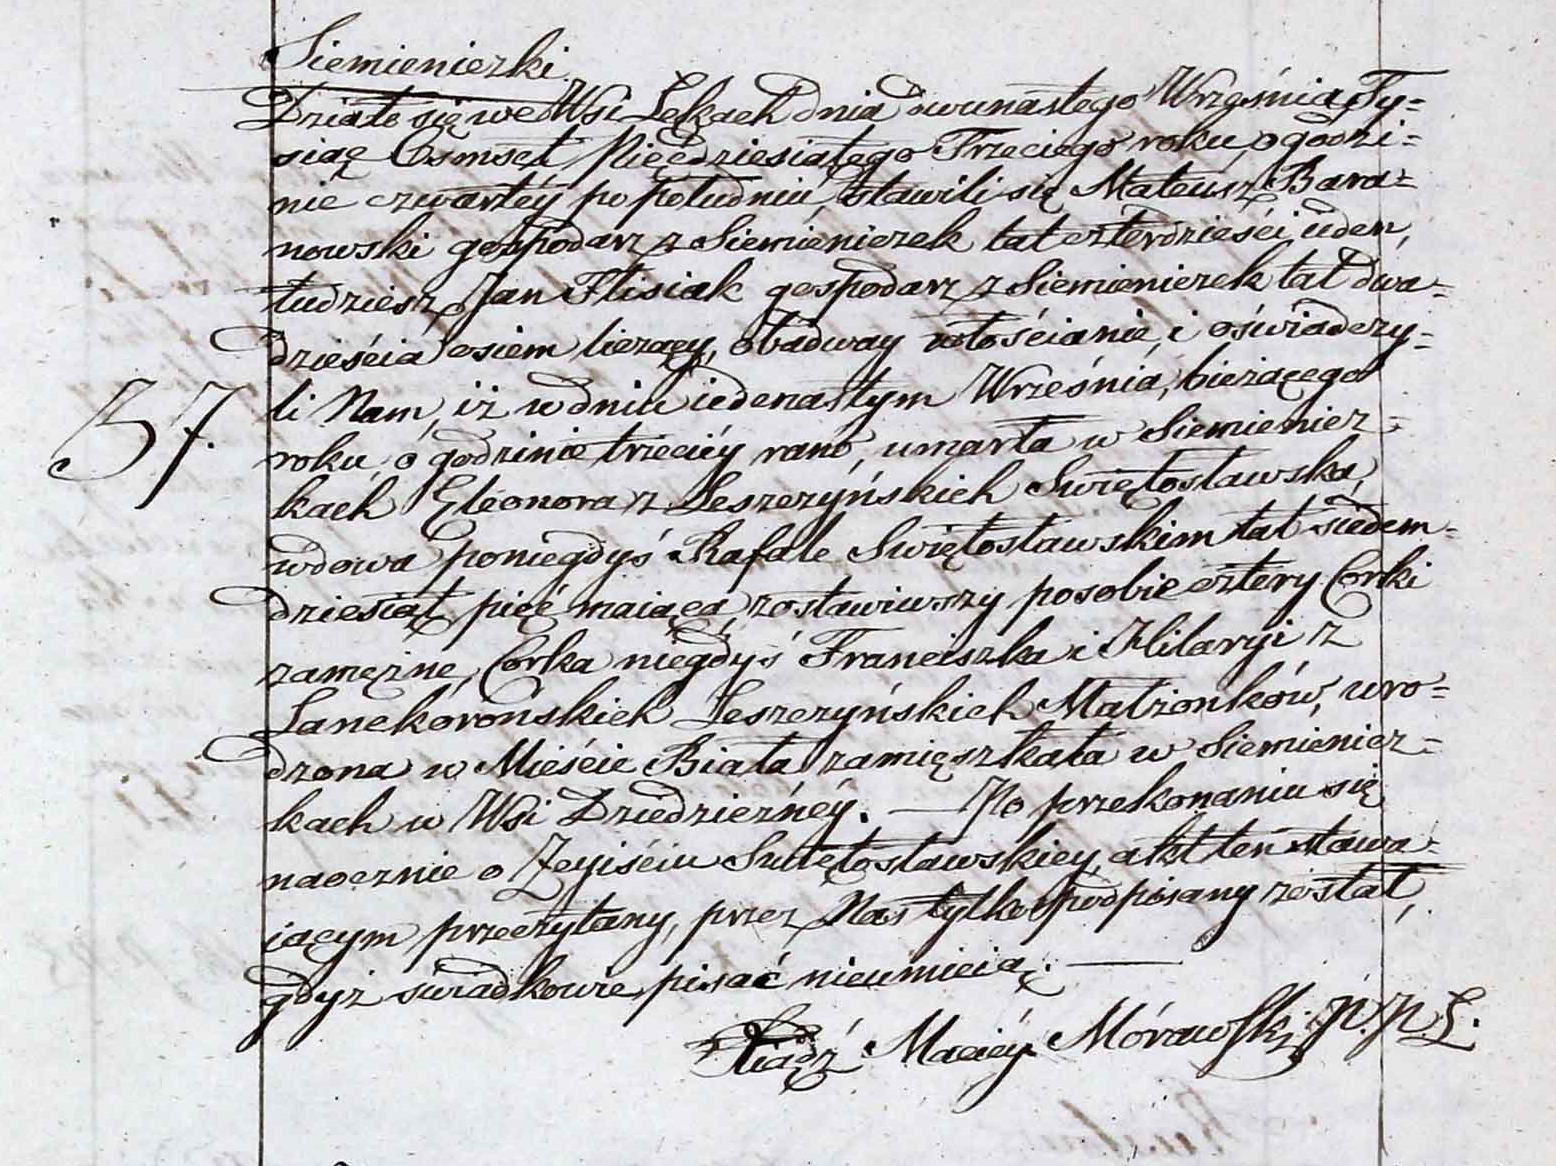 Siemieniczki
Działo się we Wsi Łękach dnia dwunastego Wrzęśnia, Ty-
siąc Ośmset Pięćdziesiątego Trzeciego roku, o godzi-
nie czwartéy po południu, stawili się Mateusz Bara-
nowski gospodarz z Siemieniczek lat czterdzieści ieden,
tudziesz Jan Flisiak gospodarz z Siemieniczek lat dwa-
dzieścia osiem liczący, obadway włościanie, i oświadczy-
57. li Nam, iż w dniu iedenastym Września, bieżącego
roku, o godzinie trzeciéy rano, umarła w Siemienicz-
kach Eleonora z Leszczyńskich Swiętosławska,
wdowa poniegdyś Rafale Swiętosławskim lat siedem-
dziesiąt pięć maiąca, zostawiwszy po sobie cztery Corki
zamężne, Corka niegdyś Franciszka i Hilaryi z
Lanckorońskich Leszczyńskich Małżonków, uro-
dzona w Mieście Biała zamięszkała w Siemienicz-
kach w Wsi Dziedziczńéy. — Po przekonaniu się
naocznie o Zeyiściu Swiętosławskiey, akt ten stawa-
iącym przeczytany, przez Nas tylko podpisany został,
gdyż swiadkowie pisać nieumieią. —
Xiądz Maciéy Mórawski P. P. Ł.